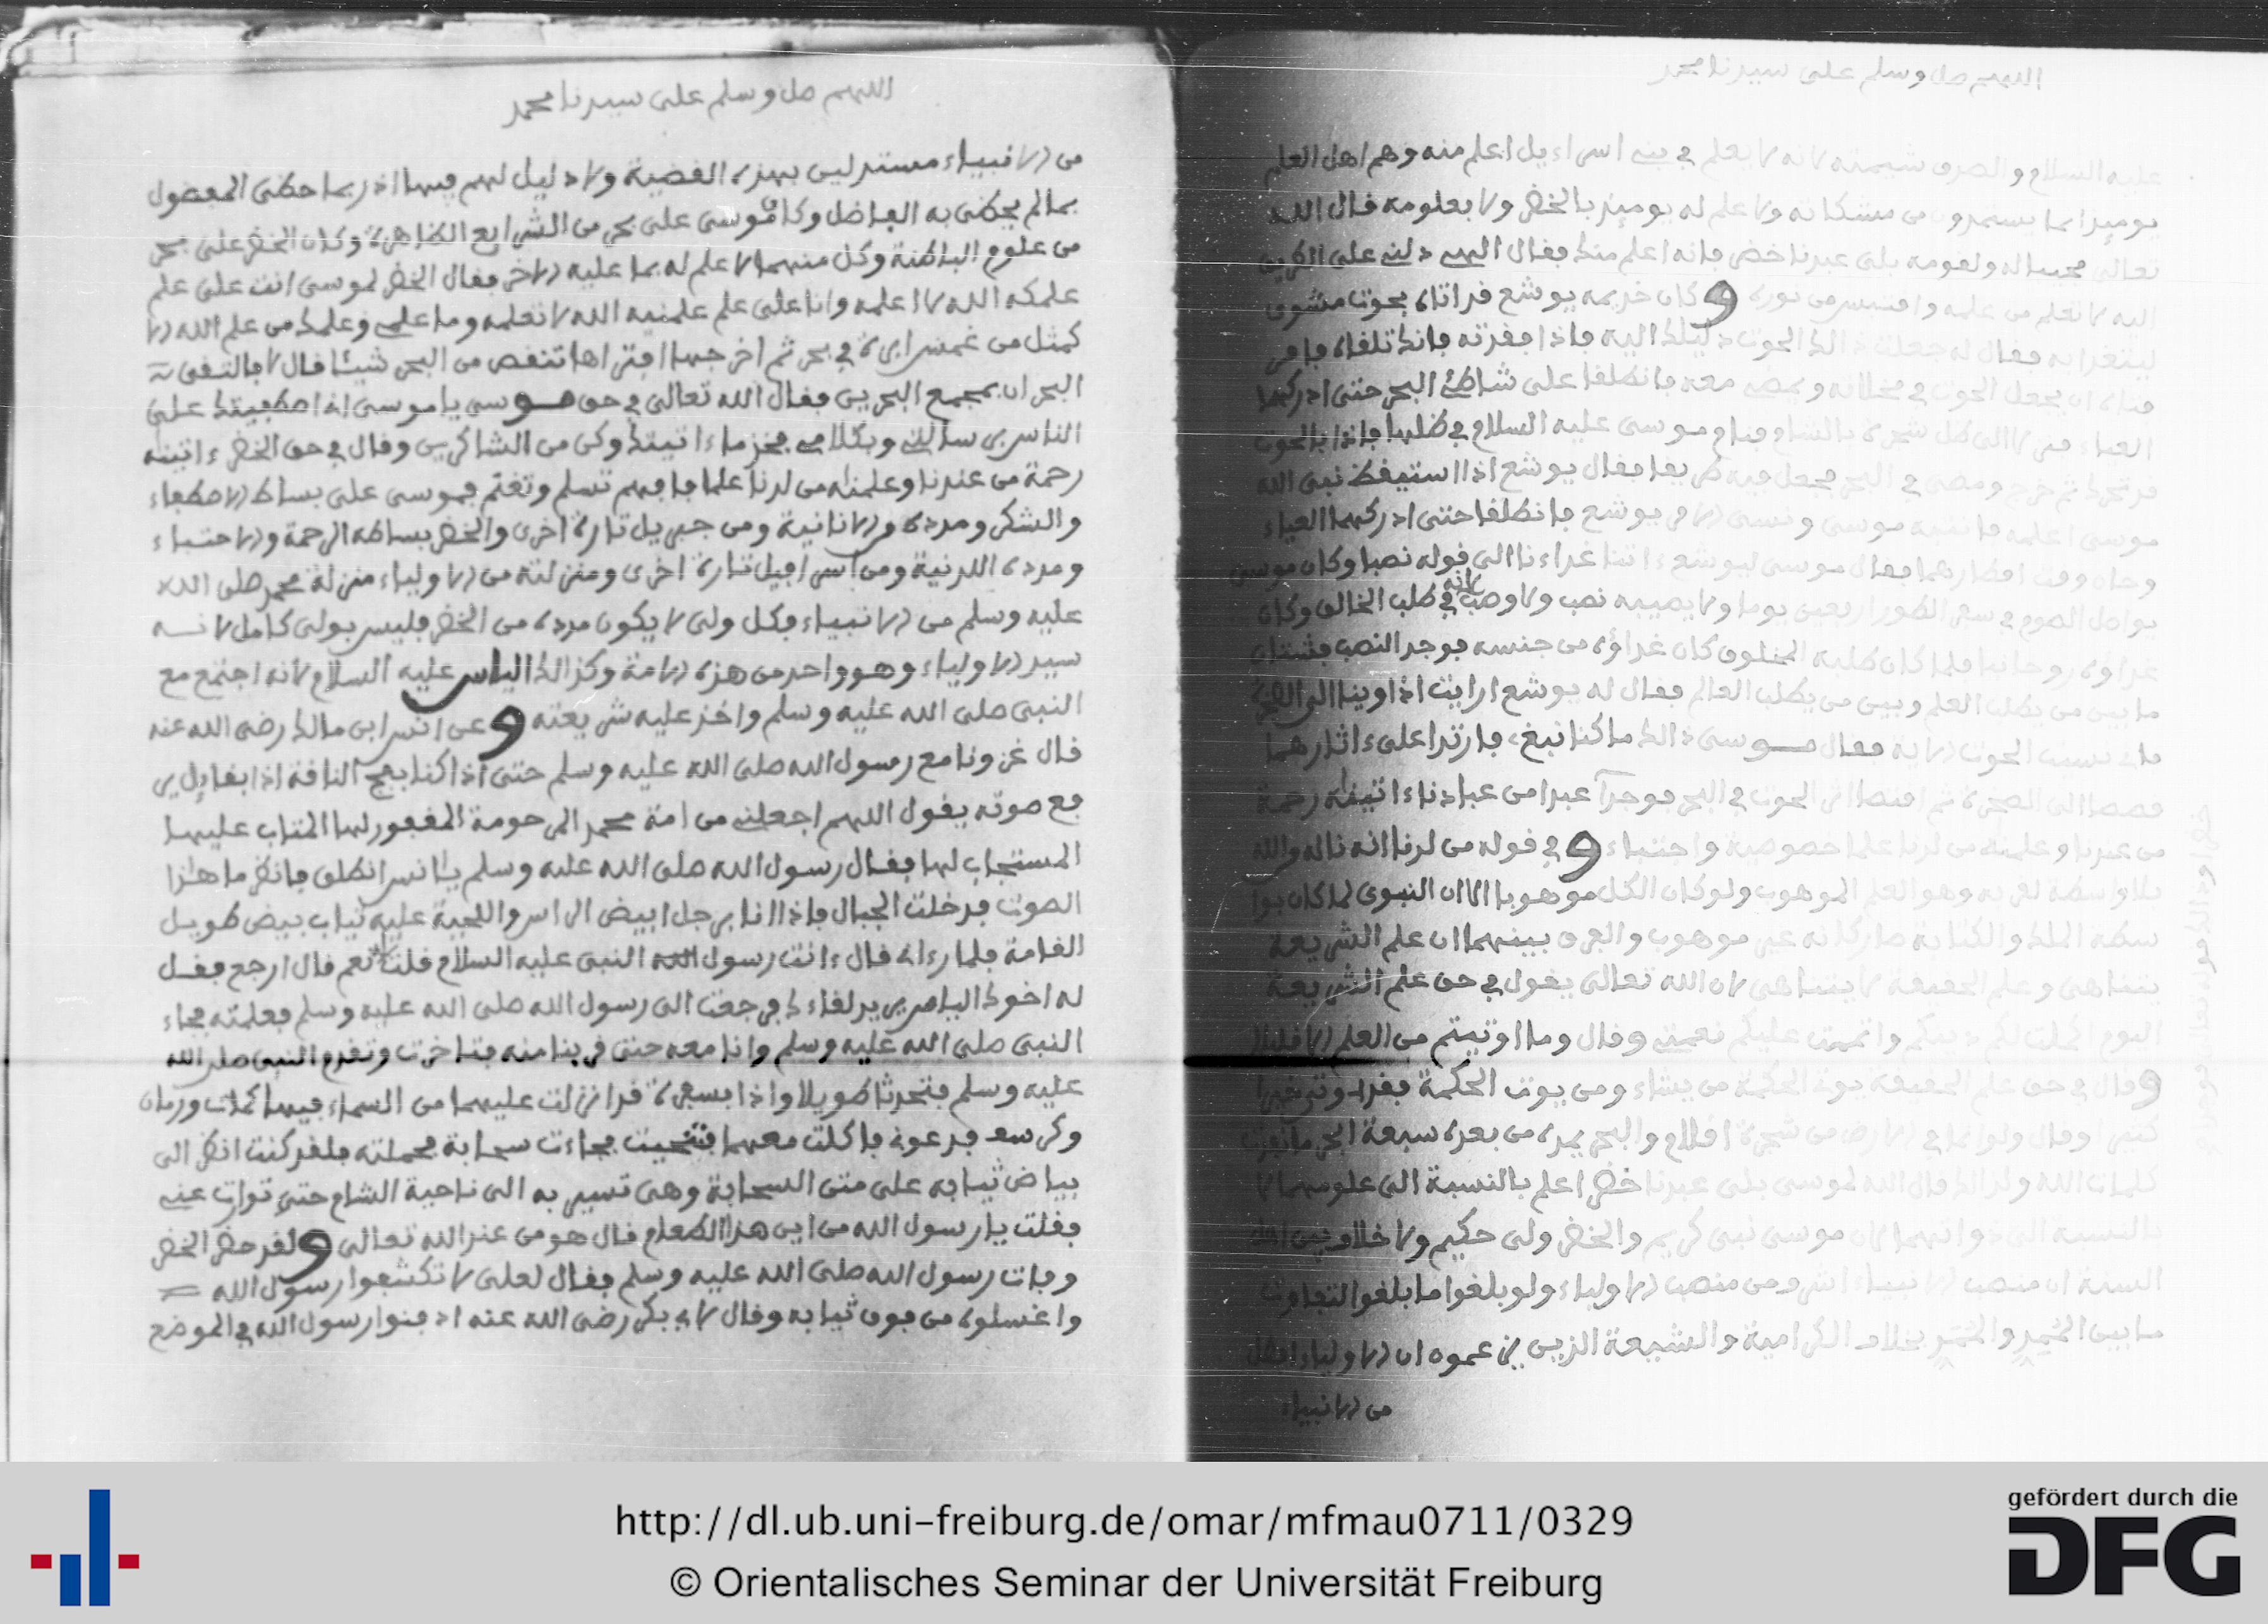 اللهم صل وسلم على سيدنا محمد
عليه السلام والصرف شيمته لانه لا يعلم في بني اسراءيل اعلم منه وهم اهل العلم
يوميذ انما يستمدون من مشكاته ولا علم له يوميذ بالخضر ولا بعلومه فقال الله
تعالى مجيبا له ولقومه بلى عبدنا خضر فانه اعلم منك فقال الهي دلني على الطريق
اليه لاتعلم من علمه واقتبس من نوره وكان خديمه يوشع قد اتاه بحوت مشوي
ليتغدا به فقال له جعلت ذالك الحوت دليلك اليه فاذا فقدته فانك تلقاه فامر
فتاه ان يجعل الحوت في مخلاته ويمضي معه فانطلقا على شاطئ البحر حتى ادركهما
العياء فنزلا الى ظل شجرة بالشام فنام موسى عليه السلام في ظلها فاذا بالحوت
قد تحرك ثم خرج ومضى في البحر فجعل فيه طريقا فقال يوشع اذا استيقظ نبي الله
موسى اعلمه فانتبه موسى ونسي الامر يوشع فانطلقا حتى ادركهما العياء
وحان وقت افطارهما فقال موسى ليوشع ءاتنا غداءنا الى قوله نصبا وكان موسى
يواصل الصوم في سفر الطور اربعين يوما ولا يصيبه نصب ولا وصب لانه في طلب الخالق وكان
غداؤه روحانيا فلما كان طلبه المخلوق كان غداؤه من جنسه فوجد النصب فشتان
ما بين من يطلب العلم وبين من يطلب العالم فقال له يوشع ارايت اذ اوينا الى الصخرة
فاني نسيت الحوت الاية فقال موسى ذالك ما كنا نبغ، فارتدا على ءاثارهما
قصصا الى الصخرة ثم اقتصا اثر الحوت في البحر فوجدا عبدا من عبادنا ءاتيناه رحمة
من عندنا وعلمناه من لدنا علما خصوصية واجتباء وفي قوله من لدنا انه ناله والله
بلا واسطة لغيره وهو العلم الموهوب ولو كان الكل موهوبا الا ان النبوي لما كان بوا
سطة الملك والكتابة صار كانه غير موهوب والفرق بينهما ان علم الشريعة
يتناهى وعلم الحقيقة لا يتناهى لان الله تعالى يقول في حق علم الشريعة
اليوم اكملت لكم دينكم واتممت عليكم نعمتي وقال وما اوتيتم من العلم الا قليلا
وقال في حق علم الحقيقة يوت الحكمة من يشاء ومن يوت الحكمة فقد اوتي خيرا
كثيرا وقال ولو انما في الارض من شجرة اقلام والبحر يمده من بعده سبعة ابحر ما نفدت
كلمات الله ولذالك قال الله لموسى بلى عبدنا خضر اعلم بالنسبة الى علومهما لا
بالنسبة الى ذواتهما لان موسى نبي كريم والخضر ولي حكيم ولا خلاف بين اهل
السنة ان منصب الانبياء اشرف من منصب الاولياء ولو بلغوا ما بلغوا التفاوت
ما بين الممد والممد بخلاف الكرامية والشيعة الذين يزعمون ان الاولياء افضل
من الانبياء
اللهم صل وسلم على سيدنا محمد
من الانبياء مستدلين بهذه القضية ولا دليل لهم فيها اذ ربما حظي المفضول
بما لم يحظى به الفاضل وكان موسى على بحر من الشرايع الظاهرة وكان الخضر على بحر
من علوم الباطنة وكل منهما لا علم له بما عليه الاخر فقال الخضر لموسى انت على علم
علمكه الله لا اعلمه وانا على علم علمنيه الله لا تعلمه وما علمي وعلمك من علم الله الا
كمثل من غمس ابرة في بحر ثم اخرجها افتراها تنقص من البحر شيئا قال لا فالتقى
البحران بمجمع البحرين فقال الله تعالى في حق موسى يا موسى اني اصطفيتك على
الناس برسالتي وبكلامي فخذ ما ءاتيتك وكن من الشاكرين وقال في حق الخضر ءاتيناه
رحمة من عندنا وعلمناه من لدنا علما فافهم تسلم وتغنم فموسى على بساط الاصطفاء
والشكر ومدده فردانانية ومن جبريل تارة اخرى والخضر بساطه الرحمة والاجتباء
ومدده اللدنية ومن اسرافيل تارة اخرى ومنزلته من الاولياء منزلة محمد صلى الله
عليه وسلم من الانبياء فكل ولي لا يكون مدده من الخضر فليس بولي كامل لانه
سيد الاولياء وهو واحد من هذه الامة وكذالك الياس عليه السلام لانه اجتمع مع
النبي صلى الله عليه وسلم واخذ عليه شريعته وعن انس ابن مالك رضي الله عنه
قال غزونا مع رسول الله صلى الله عليه وسلم حتى اذا كنا بفج الناقة اذا بقايل ير
فع صوته يقول اللهم اجعلني من امة محمد المرحومة المغفور لها المتاب عليها
المستجاب لها فقال رسول الله صلى الله عليه وسلم يا انس انطلق فانظر ما هذا
الصوت فدخلت الجبال فاذا انا برجل ابيض الراس واللحية عليه ثياب بيض طويل
القامة فلما رءاني قال ءانت رسول النبي عليه السلام فقلت له نعم قال ارجع فقل
له اخوك الياس يريد لقاءك فرجعت الى رسول الله صلى الله عليه وسلم فعلمته فجاء
النبي صلى الله عليه وسلم وانا معه حتى قربنا منه فتاخرت وتقدم النبي صلى الله
عليه وسلم فتحدثا طويلا واذا بسفرة قد انزلت عليهما من السماء فيها كمات ورمان
وكرسف فدعوني فاكلت معهما فتنحيت فجاءت سحابة فحملته فلقد كنت انظر الى
بياض ثيابه على متن السحابة وهي تسير به الى ناحية الشام حتى توارت عني
فقلت يا رسول الله من اين هذا الطعام قال هو من عند الله تعالى ولقد حضر الخضر
وفات رسول الله صلى الله عليه وسلم فقال لعلي لا تكشفوا رسول الله
واغسلوه من فوق ثيابه وقال لابي بكر رضي الله عنه ادفنوا رسول الله في الموضع
http://dl.ub.uni-freiburg.de/omar/mfmau0711/0329
© Orientalisches Seminar der Universität Freiburg
gefördert durch die
DFG